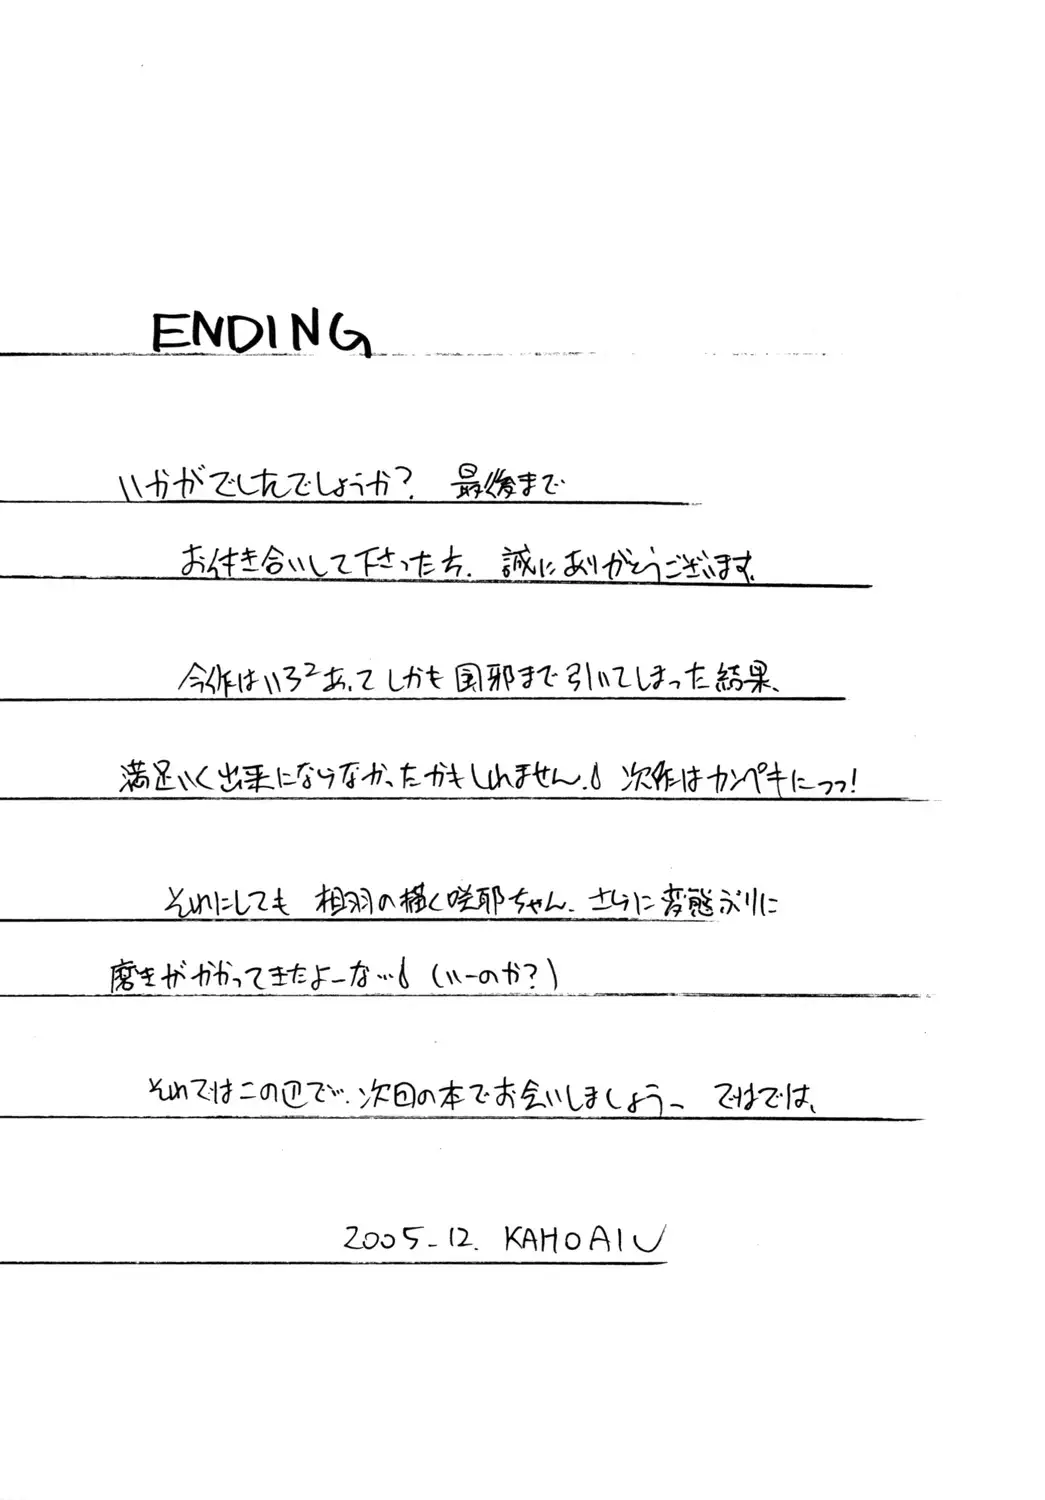 ENDING
いかがでしたでしょうか? 最後まで
お付き合いして下さった方、誠にありがとうございます。
今作はいろ2あってしかも風邪まで引いてしまった結果、
満足いく出来にならなかったかもしれません。次作はカンペキにっっ!
それにしても 相羽の描く咲耶ちゃん、さらに変態ぶりに
磨きがかかってきたよーな… (いーのか?)
それではこの辺で、次回の本でお会いしましょうー ではでは、
2005-12. KAHOAIU